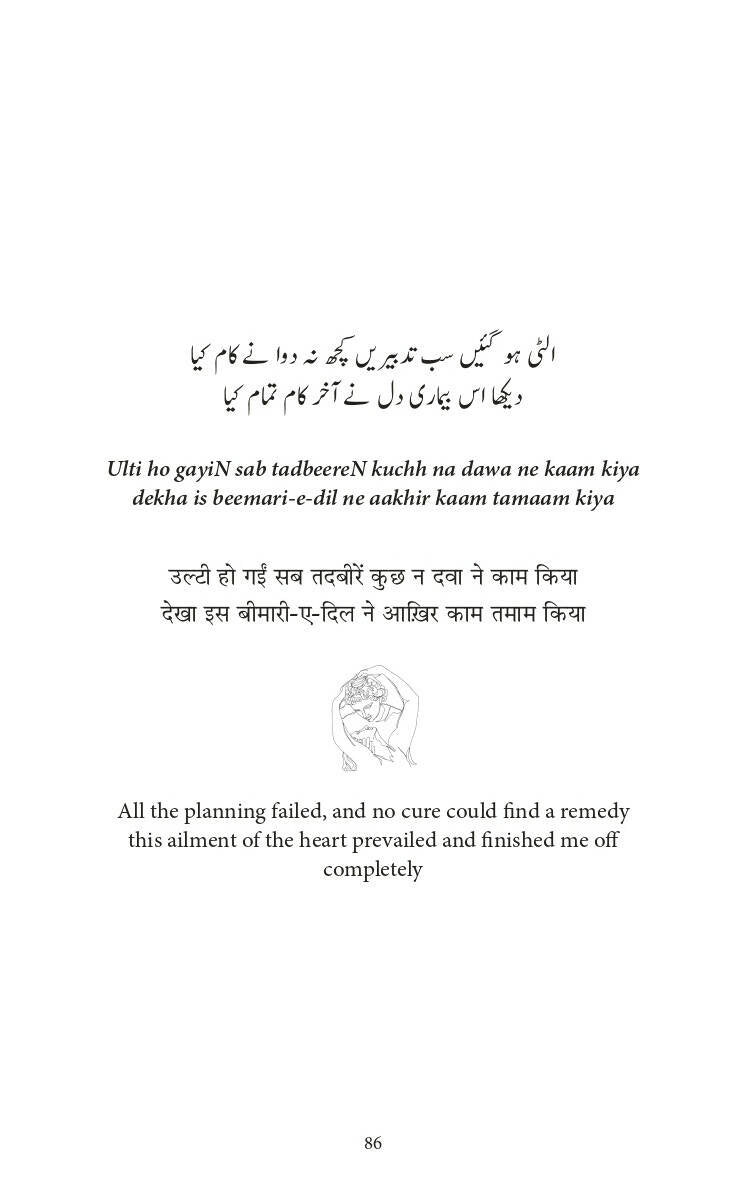 الٹی ہو گئیں سب تدبیریں کچھ نہ دوا نے کام کیا
دیکھا اس بیماری دل نے آخر کام تمام کیا
Ulti ho gayiN sab tadbeereN kuchh na dawa ne kaam kiya
dekha is beemari-e-dil ne aakhir kaam tamaam kiya
उल्टी हो गईं सब तदबीरें कुछ न दवा ने काम किया
देखा इस बीमारी-ए-दिल ने आख़िर काम तमाम किया
All the planning failed, and no cure could find a remedy
this ailment of the heart prevailed and finished me off
completely
86